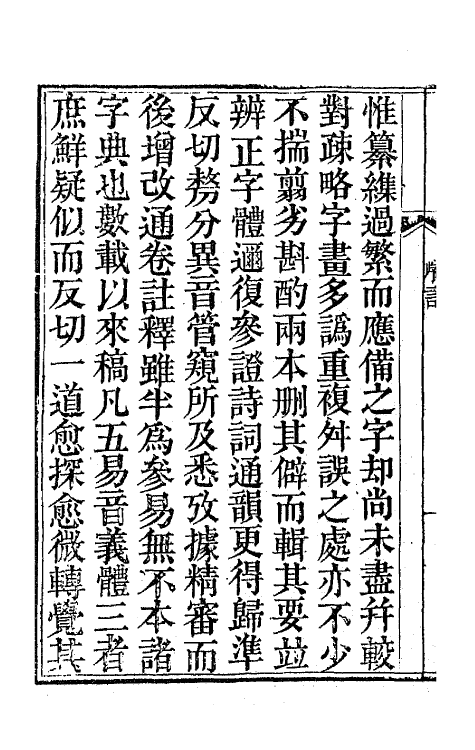 惟纂緝過繁而應備之字却尚未盡幷較
對疎略字畫多譌重複舛誤之處亦不少
不揣翦劣斟酌兩本删其僻而輯其要竝
辨正字體邇復參證詩詞通韻更得歸準
反切務分異音管窺所及悉攷據精審而
後增改通卷註釋雖半爲參易無不本諸
字典也數載以來稿凡五易音義體三者
庶鮮疑似而反切一道愈探愈微轉覺其